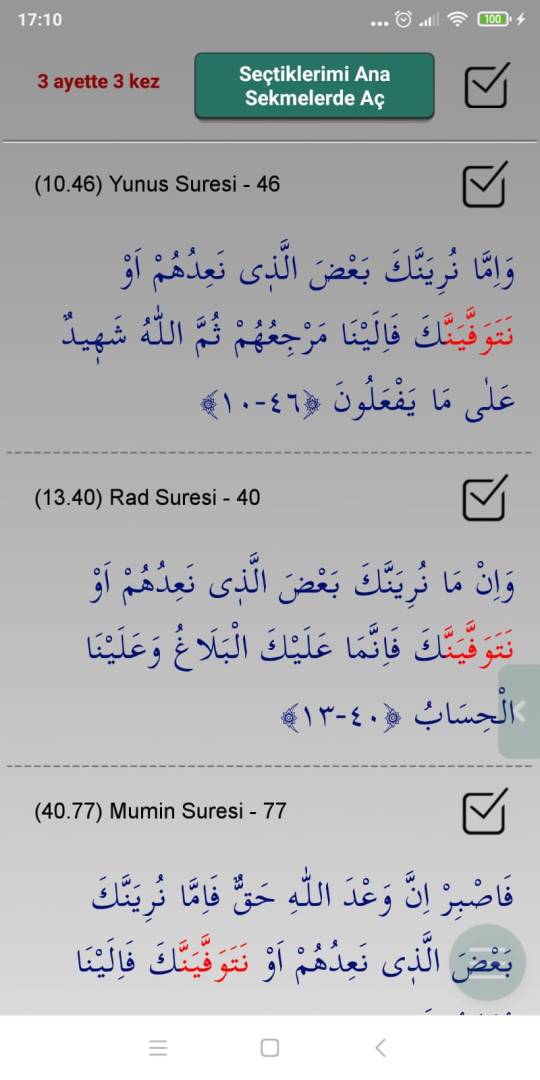 17:10
100
3 ayette 3 kez
Seçtiklerimi Ana
Sekmelerde Aç
(10.46) Yunus Suresi - 46
وَاِمَّا نُرِيَنَّكَ بَعْضَ الَّذٖى نَعِدُهُمْ اَوْ
نَتَوَفَّيَنَّكَ فَاِلَيْنَا مَرْجِعُهُمْ ثُمَّ اللّٰهُ شَهٖيدٌ
عَلٰى مَا يَفْعَلُونَ ﴿٤٦-١٠﴾
(13.40) Rad Suresi - 40
وَاِنْ مَا نُرِيَنَّكَ بَعْضَ الَّذٖى نَعِدُهُمْ اَوْ
نَتَوَفَّيَنَّكَ فَاِنَّمَا عَلَيْكَ الْبَلَاغُ وَعَلَيْنَا
الْحِسَابُ ﴿٤٠-١٣﴾
(40.77) Mumin Suresi - 77
فَاصْبِرْ اِنَّ وَعْدَ اللّٰهِ حَقٌّ فَاِمَّا نُرِيَنَّكَ
بَعْضَ الَّذٖى نَعِدُهُمْ اَوْ نَتَوَفَّيَنَّكَ فَاِلَيْنَا